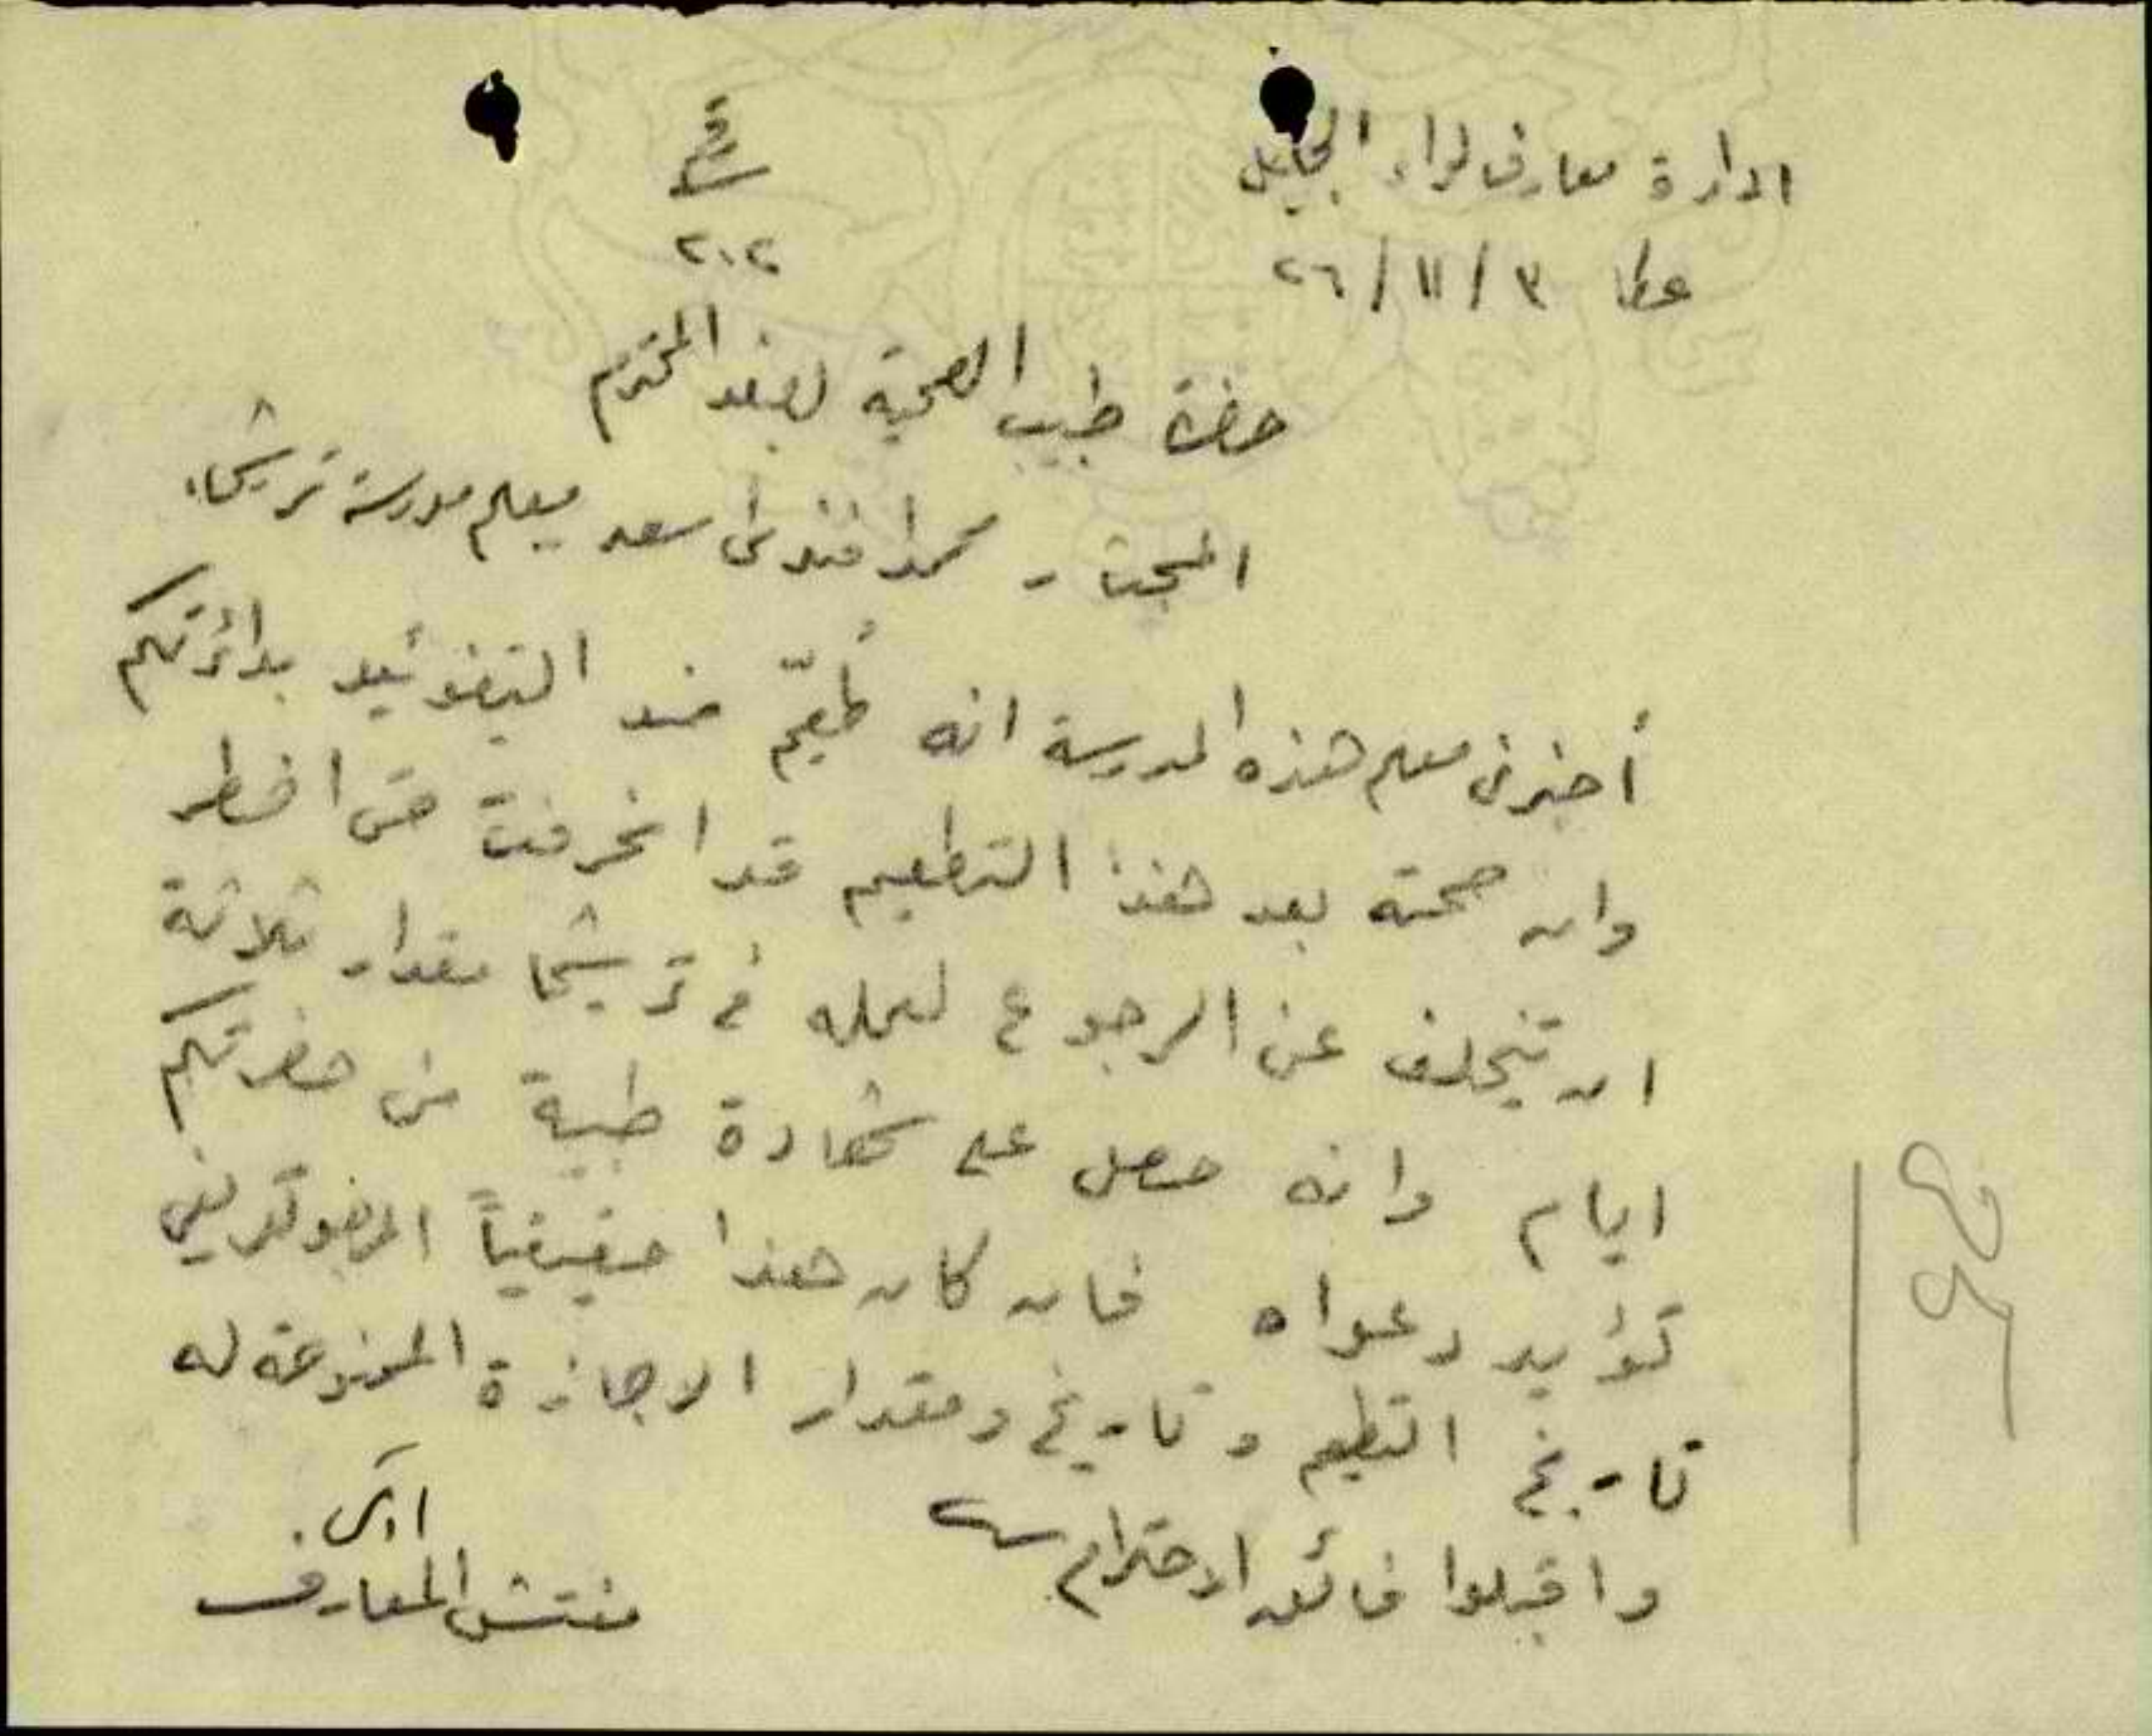 ادارة معارف لواء الجليل
رقم
عكا ٣ / ١١ / ٢٦
٢٠٢
حضرة طبيب الصحية بصفد المحترم
محمد افندي سعد معلم مدرسة ترشيحا
أخبرني معلم هذه المدرسة انه طُعِّم ضد التيفوئيد بدائرتكم
وان صحته بعد هذا التطعيم قد انحرفت حتى اضطر
ان يتخلف عن الرجوع لعمله في ترشيحا مقدار ثلاثة
ايام وانه حصل على شهادة طبية من حضرتكم
تؤيد دعواه فان كان هذا حقيقياً ارجو تعريفي
تاريخ التطعيم وتاريخ ومقدار الاجازة الممنوحة له
واقبلوا فائق الاحترام
مفتش المعارف